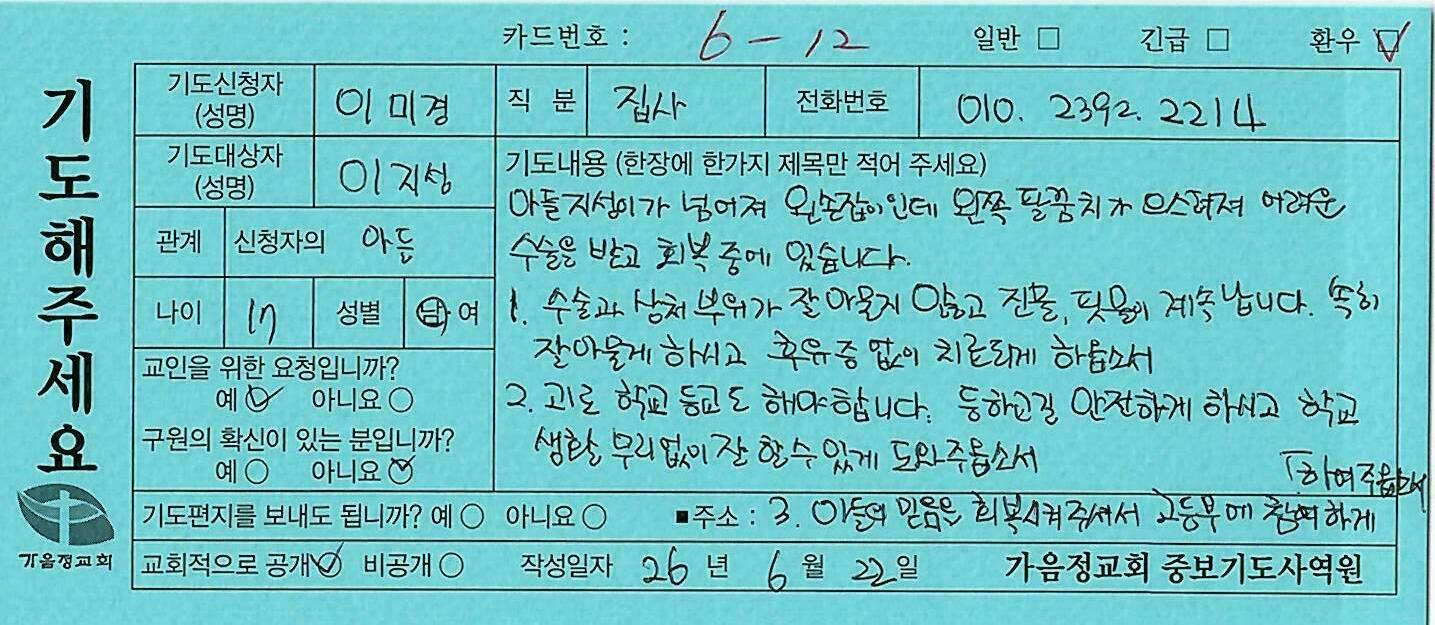 카드번호 : 6 - 12 일반 □ 긴급 □ 환우 ☑
기도해주세요
기도신청자 (성명) 이미경 직 분 집사 전화번호 010. 2392. 2214
기도대상자 (성명) 이지성
관계 신청자의 아들
나이 17 성별 남 여
교인을 위한 요청입니까?
예 ☑ 아니요 ○
구원의 확신이 있는 분입니까?
예 ○ 아니요 ☑
기도내용 (한장에 한가지 제목만 적어 주세요)
아들지성이가 넘어져 왼손잡이인데 왼쪽 팔꿈치가 으스러져 어려운
수술을 받고 회복 중에 있습니다.
1. 수술과 상처 부위가 잘 아물지 않고 진물, 핏물이 계속 납니다. 속히
잘아물게 하시고 후유증 없이 치료되게 하옵소서
2. 학교 등교도 해야합니다. 등하교길 안전하게 하시고 학교
생활 무리없이 잘 할수 있게 도와주옵소서
기도편지를 보내도 됩니까? 예 ○ 아니요 ○ ■주소 : 3. 아들의 믿음을 회복시켜주셔서 고등부에 참여하게
하여주옵소서
교회적으로 공개 ☑ 비공개 ○ 작성일자 26 년 6 월 22 일 가음정교회 중보기도사역원
가음정교회